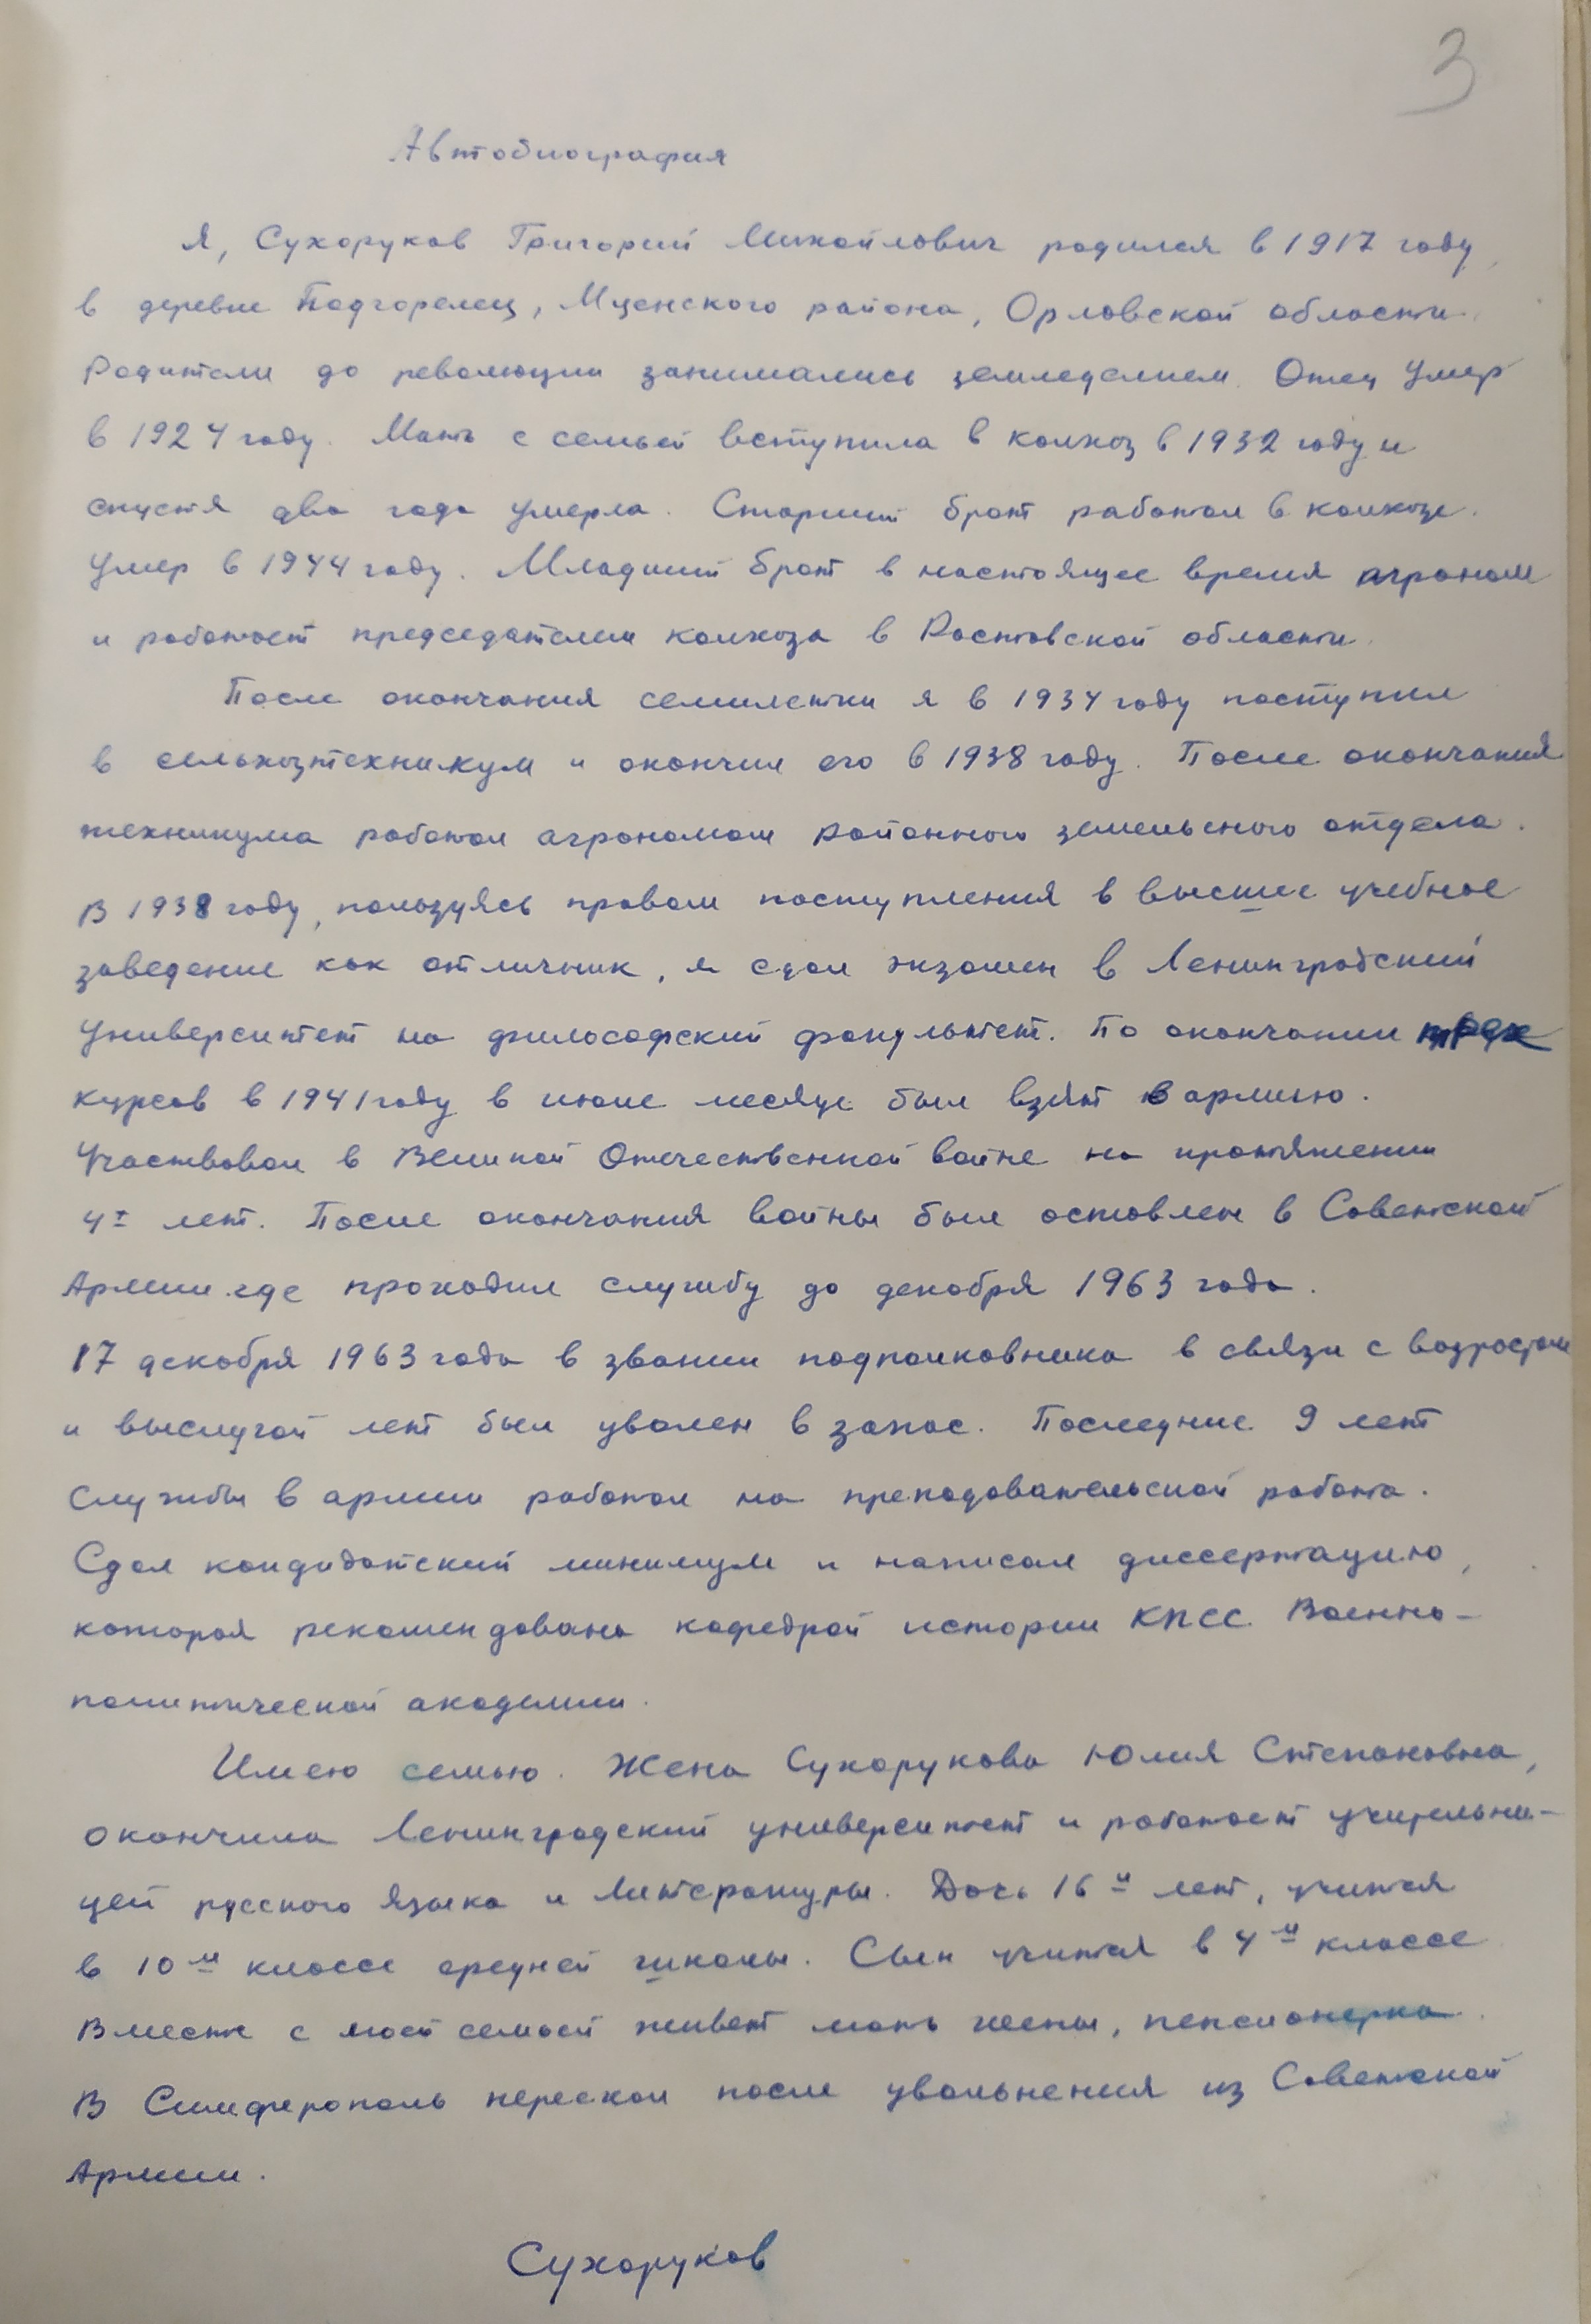 3
Автобиография
Я, Сухоруков Григорий Михайлович родился в 1917 году,
в деревне Подгорелец, Мценского района, Орловской области.
Родители до революции занимались земледелием. Отец умер
в 1924 году. Мать с семьей вступила в колхоз в 1932 году и
спустя два года умерла. Старший брат работал в колхозе.
Умер в 1944 году. Младший брат в настоящее время агроном
и работает председателем колхоза в Ростовской области.
После окончания семилетки я в 1934 году поступил
в сельхозтехникум и окончил его в 1938 году. После окончания
техникума работал агрономом районного земельного отдела.
В 1938 году, пользуясь правом поступления в высшее учебное
заведение как отличник, я сдал экзамен в Ленинградский
Университет на философский факультет. По окончании трех
курсов в 1941 году в июле месяце был взят в армию.
Участвовал в Великой Отечественной войне на протяжении
4х лет. После окончания войны был оставлен в Советской
Армии где проходил службу до декабря 1963 года.
17 декабря 1963 года в звании подполковника в связи с возрастом
и выслугой лет был уволен в запас. Последние 9 лет
службы в армии работал на преподавательской работа.
Сдал кандидатский минимум и написал диссертацию,
которая рекомендована кафедрой истории КПСС Военно-
политической академии.
Имею семью. Жена Сухорукова Юлия Степановна,
окончила Ленинградский университет и работает учительни-
цей русского языка и литературы. Дочь 16и лет, учится
в 10м классе средней школы. Сын учится в 4м классе
Вместе с моей семьей живет мать жены, пенсионерка.
В Симферополь переехал после увольнения из Советской
Армии.
Сухоруков